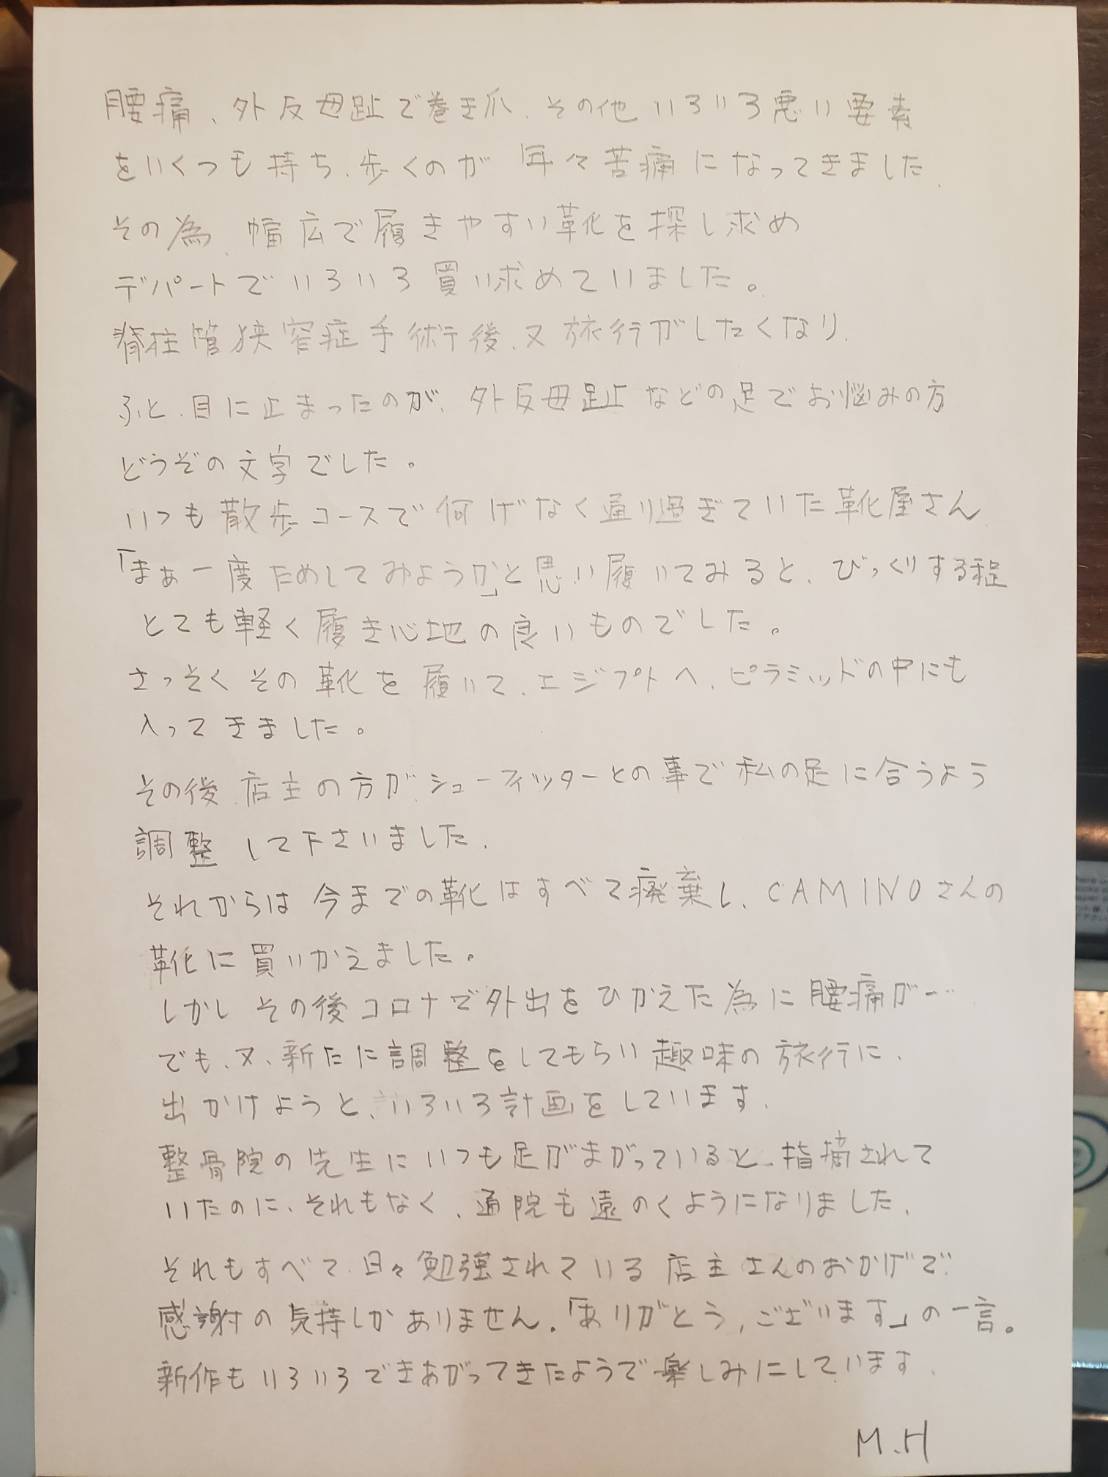 腰痛、外反母趾で巻き爪、その他いろいろ悪い要素
をいくつも持ち、歩くのが年々苦痛になってきました。
その為、幅広で履きやすい靴を探し求め
デパートでいろいろ買い求めていました。
脊柱管狭窄症手術後、又旅行がしたくなり、
ふと、目に止まったのが、外反母趾などの足でお悩みの方
どうぞの文字でした。
いつも散歩コースで何げなく通り過ぎていた靴屋さん
「まぁ一度ためしてみようか」と思い履いてみると、びっくりする程
とても軽く履き心地の良いものでした。
さっそくその靴を履いて、エジプトへ、ピラミッドの中にも
入ってきました。
その後、店主の方が、シューフィッターとの事で私の足に合うよう
調整して下さいました。
それからは今までの靴はすべて廃棄し、CAMINOさんの
靴に買いかえました。
しかしその後コロナで外出をひかえた為に腰痛が…
でも、又、新たに調整をしてもらい趣味の旅行に、
出かけようと、いろいろ計画をしています。
整骨院の先生にいつも足がまがっていると、指摘されて
いたのに、それもなく、通院も遠のくようになりました。
それもすべて日々勉強されている店主さんのおかげで
感謝の気持しかありません。「ありがとう、ございます」の一言。
新作もいろいろできあがってきたようで楽しみにしています。
M.H